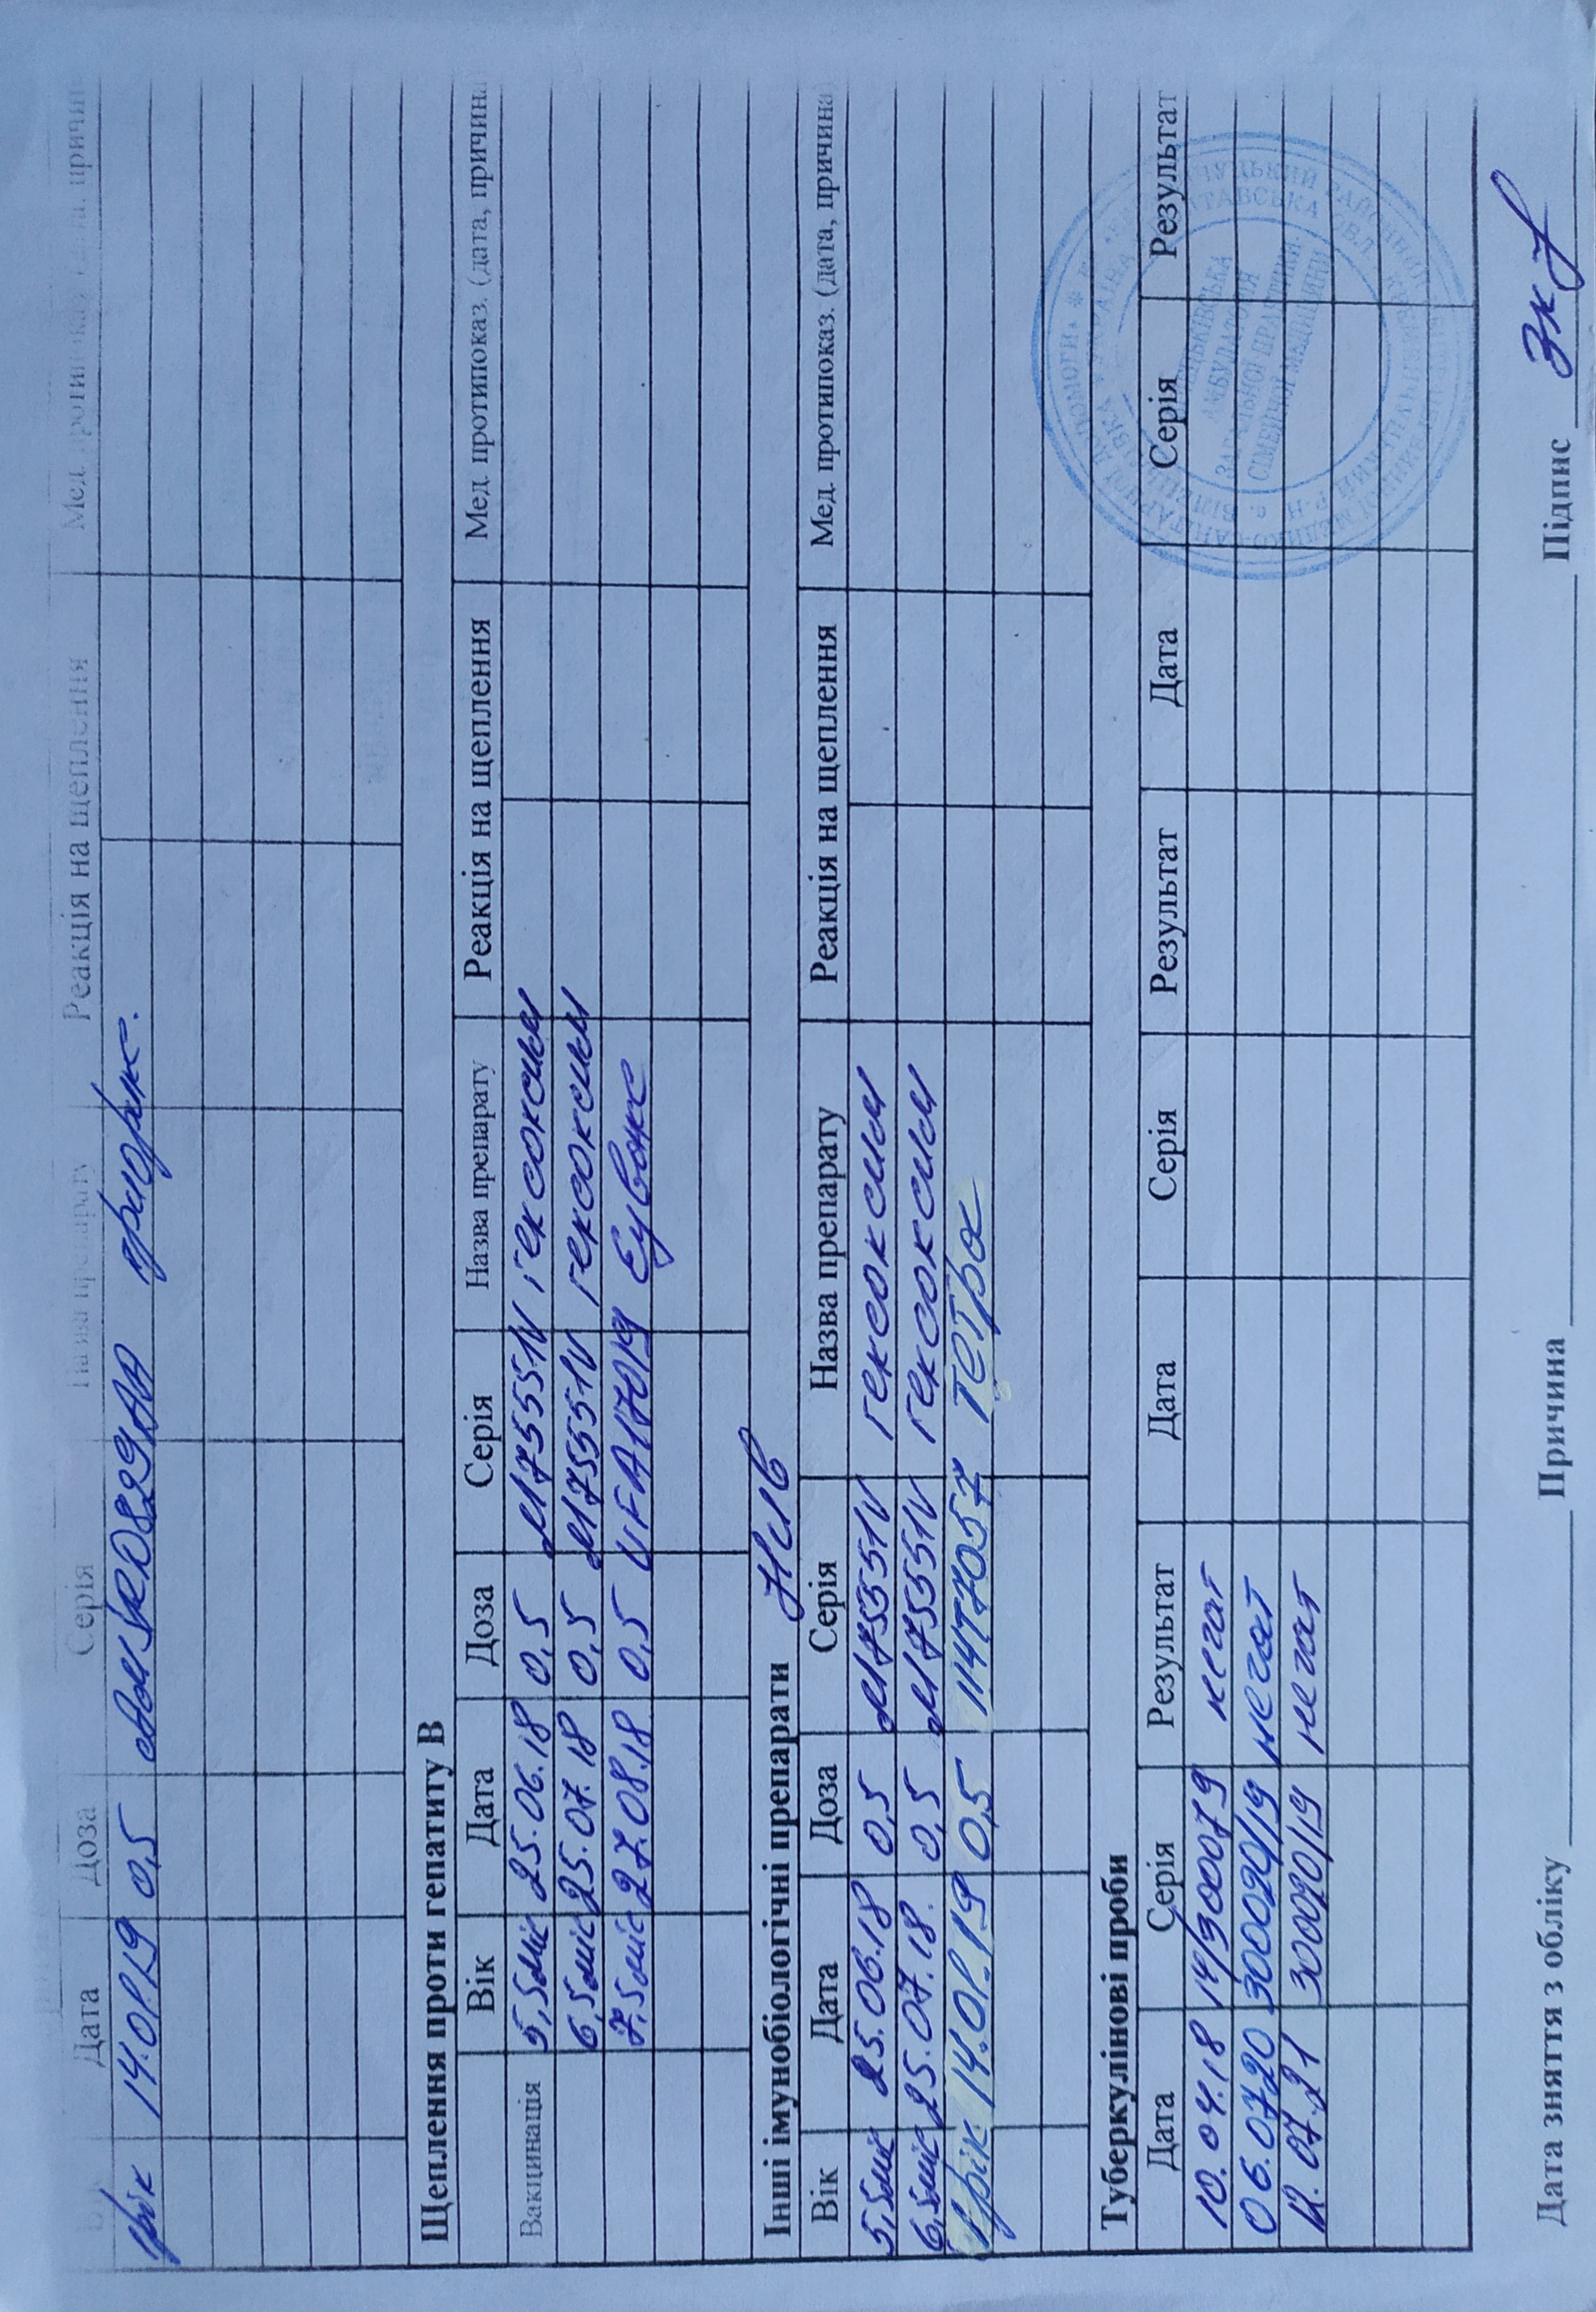 Вік Дата Доза Серія Назва препарату Реакція на щеплення Мед. протипоказ. (дата, причина
1рік 14.01.19 0,5 приорикс.
Щеплення проти гепатиту В
Вік Дата Доза Серія Назва препарату Реакція на щеплення Мед. протипоказ. (дата, причина
Вакцинація 5,5міс 25.06.18 0,5 М75551V гексаксим
6,5міс 25.07.18 0,5 М75551V гексаксим
7,5міс 27.08.18 0,5 UFA17019 Еувакс
Інші імунобіологічні препарати Нів
Вік Дата Доза Серія Назва препарату Реакція на щеплення Мед. протипоказ. (дата, причина
5,5міс 25.06.18 0,5 М75551V гексаксим
6,5міс 25.07.18. 0,5 М75551V гексаксим
1рік 14.01.19 0,5 114T7057 тетра
Туберкулінові проби
Дата Серія Результат Дата Серія Результат Дата Серія Результат
10.04.18 14/300079 негат
06.0720 300020/19 негат
12.07.21 300020/19 негат
АМБУЛАТОРІЯ
ЗАГАЛЬНОЇ ПРАКТИКИ
СІМЕЙНОЇ МЕДИЦИНИ
Дата зняття з обліку Причина Підпис